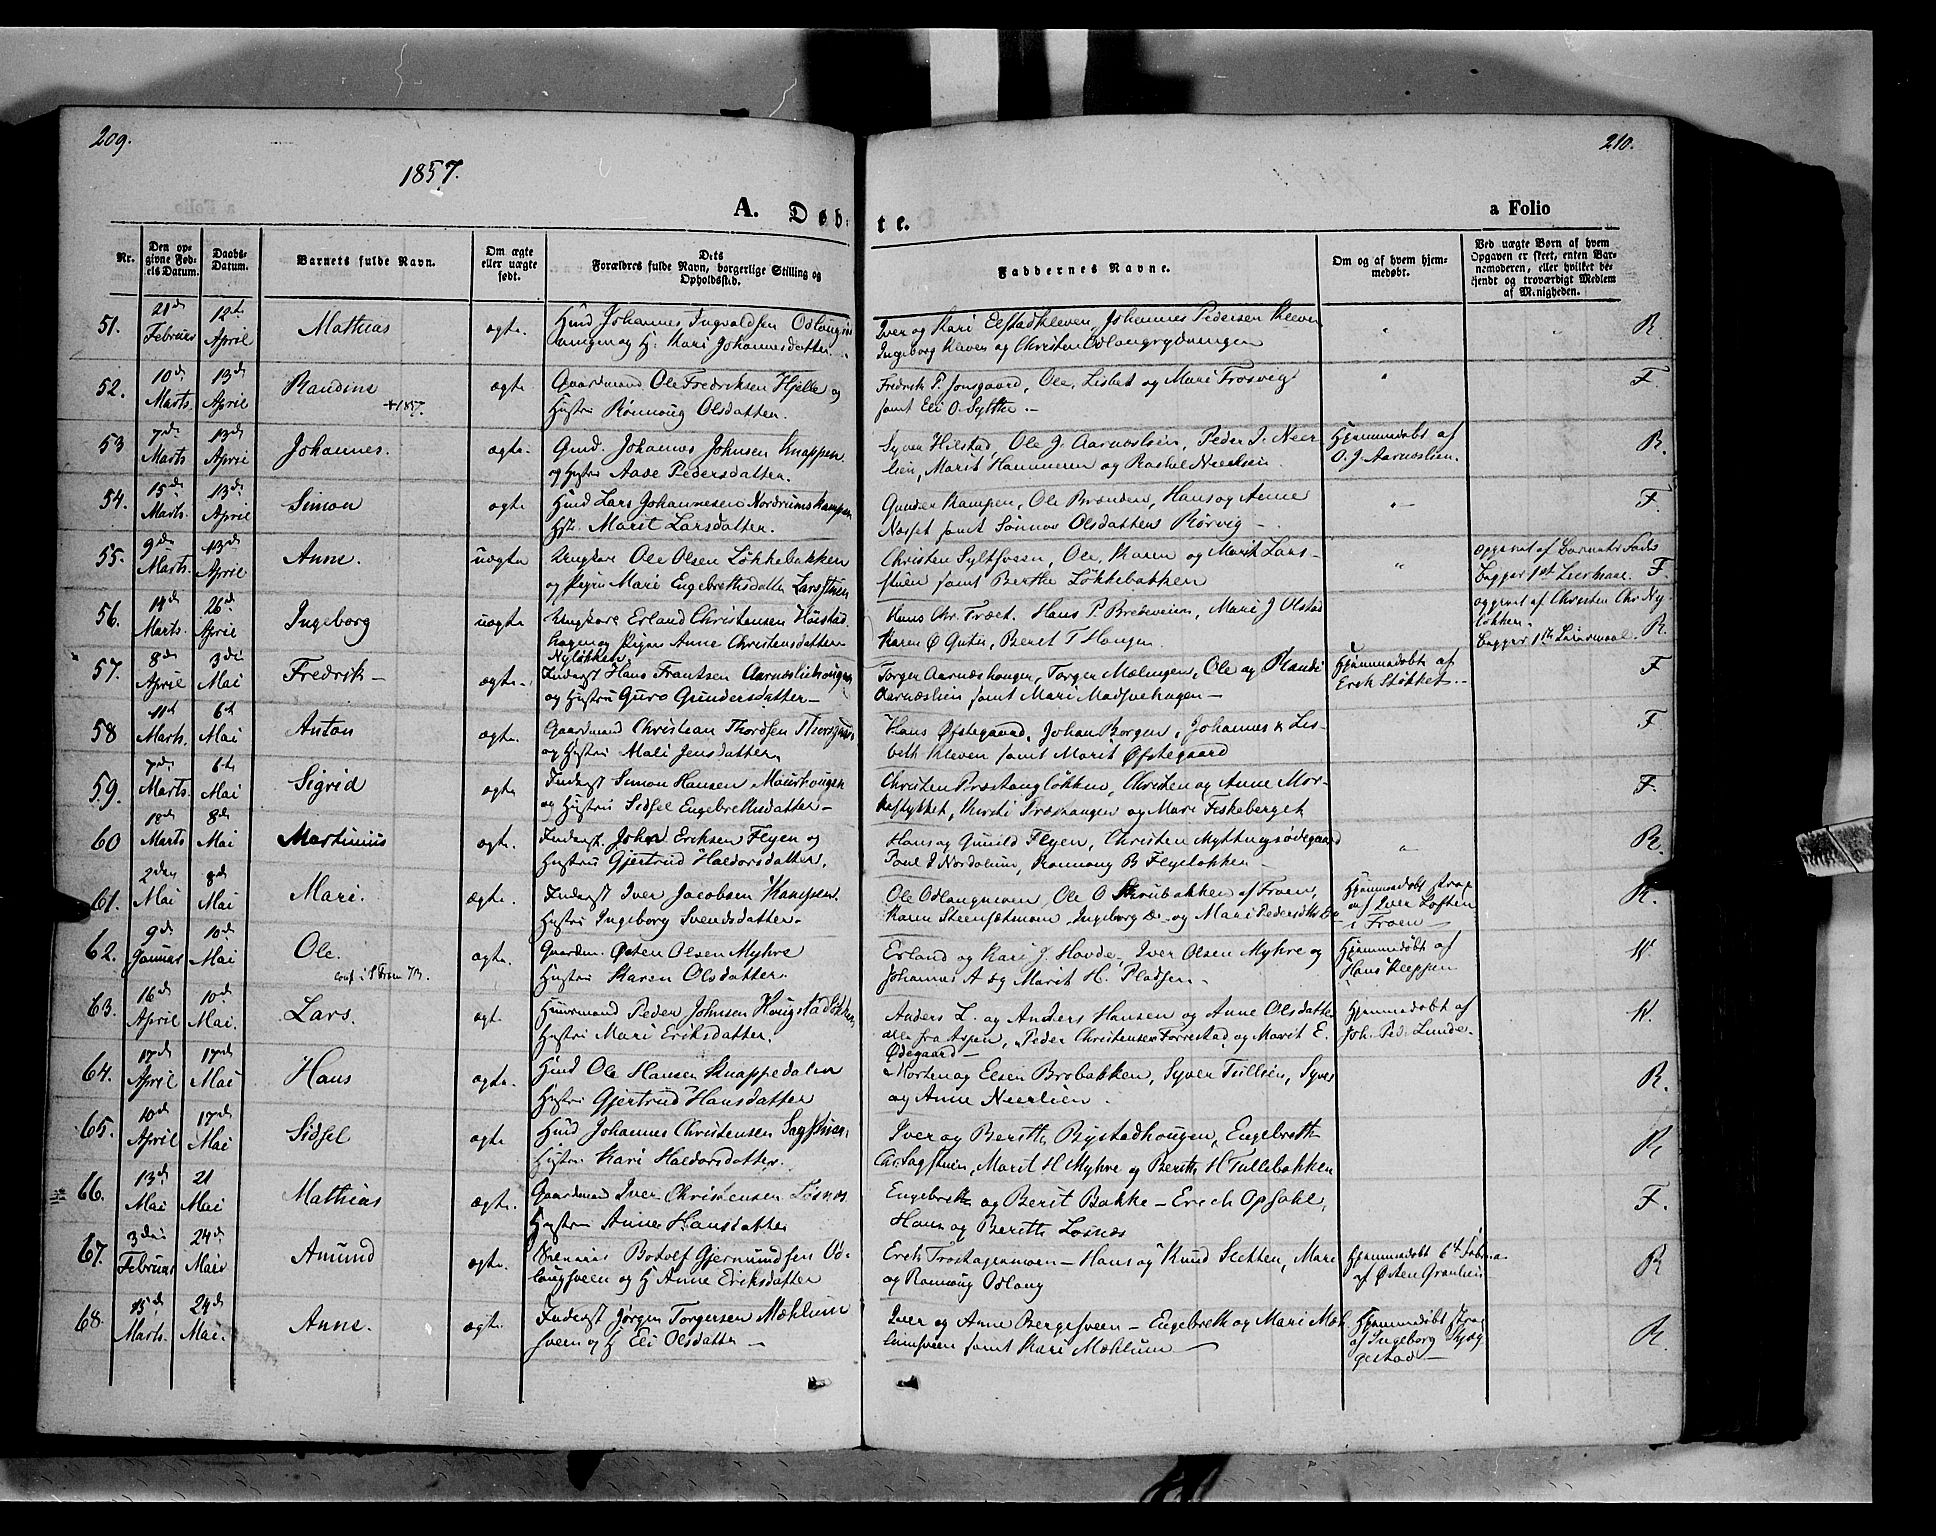 209.
210.
1857.
A. Døb-
te.
a Folio
Nr.
Den opgivne Fødsels Datum.
Daabs-Datum.
Barnets fulde Navn.
Om ægte eller uægte født.
Dets Forældres fulde Navn, borgerlige Stilling og Opholdssted.
Faddernes Navne.
Om og af hvem hjemmedøbt.
Ved uægte Børn af hvem Opgaven er skeet, enten Barnemoderen, eller hvilket bekjendt og troværdigt Medlem af Menigheden.
51. 21de Februar 12te April Mathias ægte. Hmd Johannes Ingvaldsen
og H: Kari Johannesdatter.
Iver og Kari Elstadkleven, Johannes Pedersen Kleven
Ingeborg Kleven og Christen Odlangrydningen R
52. 10de Marts 13de April Randine +1857. ægte Gaardmand Ole Fredriksen Hjelle og
Hustru Rønnoug Olsdatter.
Fredrik P. Jonsgaard, Ole, Lisbet og Mari Trosvig
samt Eli O. Sylthe.- F.
53 7de Marts 13de April Johannes. ægte. Gmd. Johannes Johnsen Knappen
og Hustr. Aase Pedersdatter.
Syver Hilstad, Ole J. Aarnæslien, Peder I. Neer-
lien, Marit Hammeren og Rachel Neerlien
Hjemmedøbt af
O. J. Aarnæslien. R.
54. 15de Marts. 13de April Simon ægte Hmd Lars Johannesen Nordrumskampen
Hst. Marit Larsdatter.
Gunder Kampen, Ole Brænden, Hans og Anne
Næsset samt Sønnov Olsdatter Rørvig - F.
55. 9de Marts. 13de April Anne. uægte Ungkar Ole Olsen Løkkebakken
og Pigen Mari Engebretsdatter Larsstuen
Christen Sylthveen, Ole, Karen og Marit Lars-
stuen samt Berthe Løkkebakken
opgivet af Barnets Fader
Begges 1st Leiermaal. F.
56. 14de Marts. 26de April Ingeborg uægte Ungkare Erland Christensen Høistad
hagen og Pigen Anne Christensdatter
Nyløkken
Hans Chr. Træet. Hans P. Brekeveien, Mari J Ulstad
Karen Ø Guter, Beret T Hougen.
opgivet af Christen Chr Ny-
løkken.
Begges 1ste Leiermaal. R.
57. 8de April 3die Mai Fredrik- ægte. Inderst Hans Frantsen Aarnæsliehougen
og Hustru Guro Gundersdatter-
Torger Aarnæshougen, Torger Mælingen, Ole og Randi
Aarnæslien samt Mari Madsvehagen-
Hjemmedøbt af
Erik Støkket.- F
58 11te Marts. 6te Mai Anton ægte. Gaardmand Christian Thordsen
og Hustru Mali Jensdatter
Hans Øfstegaard, Johan Borgen, Johannes & Lis-
beth Kleven samt Marit Øfstegaard F
59. 7de Marts. 6te Mai Sigrid ægte Inderst Simon Hansen Maurhougen
og Hustru Sidsel Engebrethsdatter-
Christen Præstangløkken, Christen og Anne Mor-
kestykket, Kirsti Præsthaugen og Mari Fiskeberget F.
60 18de Marts 8de Mai Martinius ægte. Inderst Johan Eriksen Flyen og
Hustru Gjertrud Haldorsdatter.
Hans og Gunild Flyen, Christen Myttingsødegaard
Poul J Nordalum, Ronnoug B Flyeløkken - R.
61. 2den Mai 8de Mai Mari. ægte. Inderst Iver Jacobsen Kampen
Hustru Ingeborg Svendsdatter.
Ole Odlangmoen, Ole O Skrubakken af Froen,
Karen Steensetmoen, Ingeborg
Hjemmedøbt strax
af Iver Loften
i Froen - R.
62. 9de Januar 10de Mai Ole. ægte. Gaardm. Østen Olsen Myhre
Hustru Karen Olsdatter.
Erland og Kari J. Hovde, Iver Olsen Myhre og
Johannes A og Marit H. Pladsen.
Hjemmedøbt af
Hans Kleppen
63. 16de April 10de Mai. Lars. ægt. Huusmand Peder Johnsen Hougstadløkken
Hustru Mari Eriksdatter.
Anders L. og Anders Hansen og Anne Olsdatter
alle fra Aspen, Peder Christensen Forrestad og Marit E.
Ødegaard-
Hjemmedøbt af
Joh. Ped. Lunde.
64. 17de April 17de Mai Hans ægte. Hmd Ole Hansen Knappedalen
Hustru Gjertrud Hansdatter
Morten og Elsen Brobakken, Syver Tullien, Syver
og Anne Neerlien. R.
65. 10de April 17de Mai Sidsel ægte Hmd Johannes Christensen Sagstuen.
Hustru Kari Haldorsdatter.
Iver og Berith Rystadhougen, Engebreth
Chr. Sagstuen, Marit H Myhre og Berith H Tullebakken R
66. 13de Mai 21 Mai Mathias ægte. Gaardmand Iver Christensen Losnæs
Hustru Anne Hansdatter
Engebreth og Berit Bakke - Erich Opsahl,
Hans og Berith Losnæs F.
67. 3die Februar 24de Mai Amund ægte. Bodolf Gjermundsen Od-
langsveen og H Anne Eriksdatter
Erik - Hans og Knud Sletten, Mari
og Ronnoug Odlang
Hjemmedøbt 6te Februar
af Østen Granlien R
68. 15de Marts. 24de Mai. Anne. ægte. Inderst Jørgen Torgersen Mæhlum
sveen og H Eli Olsdatter -
Iver og Anne Bergesveen - Engebreth og Mari Mæh-
lumsveen samt Kari Mæhlum -
Hjemmedøbt strax
af Ingeborg Skjæg-
gestad - R.